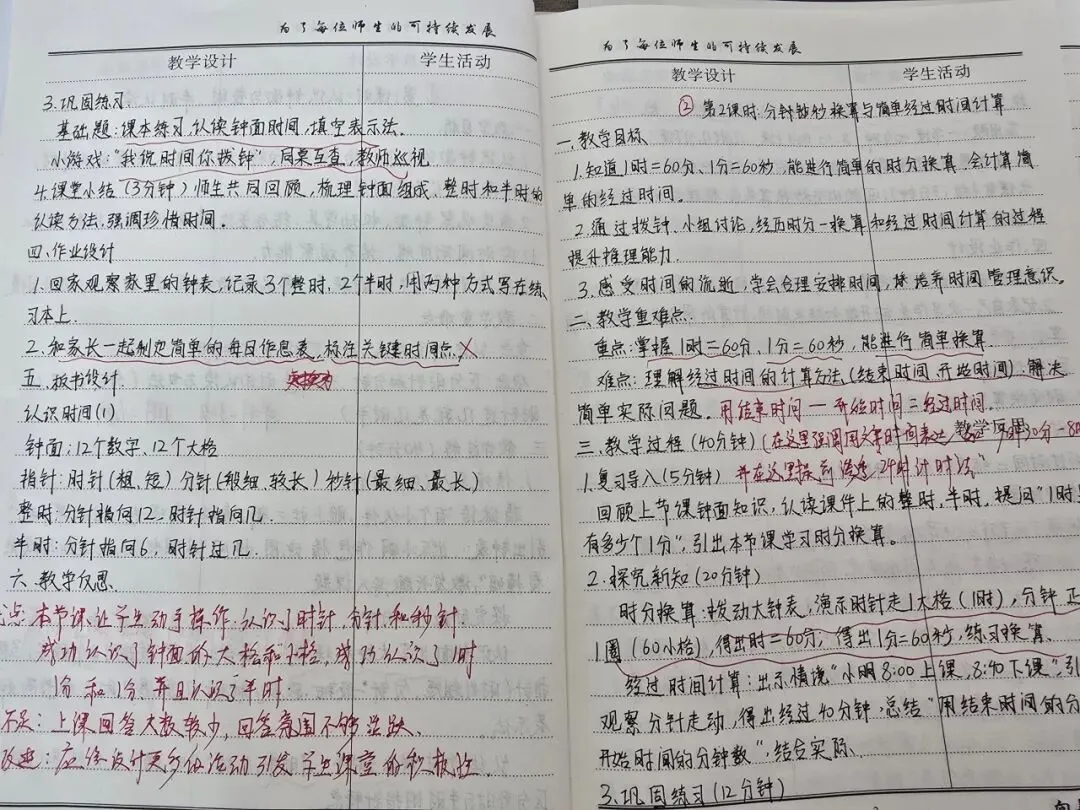 为了每位师生的可持续发展
教学设计 学生活动
3.巩固练习
基础题:课本练习,认读钟面时间,填空表示法。
小游戏:"我说时间你拨钟",同桌互查,教师巡视
4.课堂小结(3分钟)师生共同回顾,梳理钟面组成、整时和半时的
认读方法,强调珍惜时间.
四.作业设计
1.回家观察家里的钟表,记录3个整时、2个半时,用两种方式写在练
习本上.
2.和家长一起制定简单的每日作息表,标注关键时间点.
五.板书设计
认识时间(1)
钟面:12个数字、12个大格
指针:时针(粗、短)分针(较细、较长)秒针(最细、最长)
整时:分针指向12,时针指向几.
半时:分针指向6,时针过几.
六.教学反思.
点:本节课让学生动手操作.认识了时针 分针 和秒针.
成功认识了钟面的大格和小格,成功认识了1时
1分 和1分并且认识了半时.
不足:上课回答人数较少,回答氛围不够活跃.
改进:应给设计更多的活动引发学生课堂的积极性.
为了每位师生的可持续发展
教学设计 学生活动
② 第2课时:分钟 秒换算与简单经过时间计算
一.教学目标
1.知道1时=60分、1分=60秒,能进行简单的时分换算,会计算简
单的经过时间.
2.通过拨钟、小组讨论,经历时分一换算和经过时间计算的过程
提升推理能力.
3.感受时间的流逝,学会合理安排时间,培养时间管理意识.
二.教学重难点.
重点:掌握1时=60分、1分=60秒,能进行简单换算.
难点:理解经过时间的计算方法,(结束时间 开始时间),解决
简单实际问题. 用结束时间一开始时间=经过时间.
三.教学过程(40分钟)(在这里强调 时间表达 教学反思
1.复习导入(5分钟) 并在这里提到 24时计时法"
回顾上节课钟面知识,认读课件上的整时,半时,提问"1时
有多少个1分",引出本节课学习时分换算.
2.探究新知(20分钟)
时分换算:拨动大钟表,演示时针走1大格(1时),分针正
1圈(60小格),得出时=60分;得出1分=60秒,练习换算.
经过时间计算:出示情境"小明8:00上课,8:40下课",引
观察分针走动,得出经过40分钟.总结"用结束时间的分
开始时间的分钟数";结合实际.
3.巩固练习(12分钟)